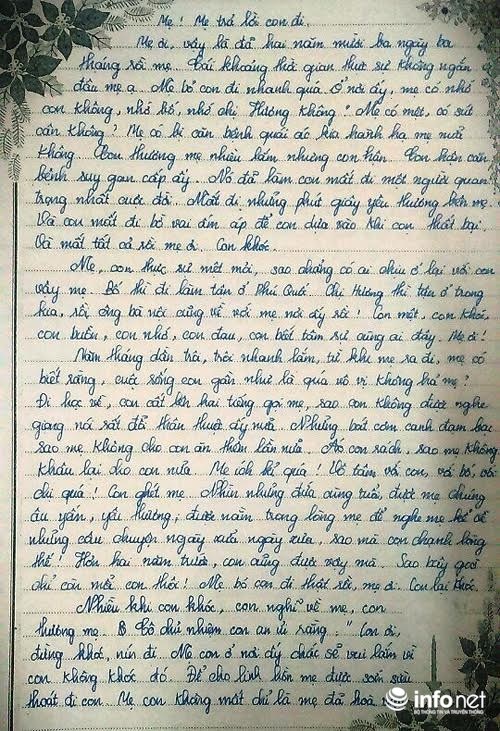 Mẹ! Mẹ trả lời con đi.
Mẹ ơi, vậy là đã hai năm mười ba ngày ba
tháng rồi mẹ. Cái khoảng thời gian thực sự không ngắn
đâu mẹ ạ. Mẹ bỏ con đi nhanh quá. Ở nơi ấy, mẹ có nhớ
con không, nhớ bố, nhớ chị Hương không? Mẹ có mệt, có sút
cân không? Mẹ có bị căn bệnh quái ác kia hành hạ mẹ nữa
không. Con thương mẹ nhiều lắm nhưng con hận. Con hận căn
bệnh suy gan cấp ấy. Nó đã làm con mất đi một người quan
trọng nhất cuộc đời. Mất đi những phút giây yêu thương bên mẹ.
Và con mất đi bờ vai ấm áp để con dựa vào khi con thất bại.
Và mất tất cả rồi mẹ ơi. Con khóc.
Mẹ, con thực sự mệt mỏi, sao chẳng có ai chịu ở lại với con
vậy mẹ. Bố thì đi làm tận ở Phú Quốc. Chị Hương thì tận ở trong
kia, rồi ông bà nội cũng về với mẹ nơi ấy rồi! Con mệt, con khóc,
con buồn, con nhớ, con đau, con biết tâm sự cùng ai đây. Mẹ ơi!
Năm tháng dần trôi, trôi nhanh lắm, từ khi mẹ ra đi, mẹ có
biết rằng, cuộc sống con gần như là quá vô vị không hả mẹ?
Đi học về, con cất lên hai tiếng gọi mẹ, sao con không được nghe
giọng nói rất đỗi thân thuộc ấy nữa. Những bát cơm canh đạm bạc
sao mẹ không cho con ăn thêm lần nữa. Áo con rách, sao mẹ không
khâu lại cho con nữa. Mẹ ích kỉ quá! Vô tâm với con, với bố, với
chị quá! Con ghét mẹ. Nhìn những đứa cùng tuổi, được mẹ chúng
âu yếm, yêu thương, được nằm trong lòng mẹ để nghe mẹ kể về
những câu chuyện ngày xửa ngày xưa, sao mà con chạnh lòng
thế! Hơn hai năm trước, con cũng được vậy mà. Sao bây giờ
chỉ còn mỗi con thôi! Mẹ bỏ con đi thật rồi, mẹ ơi. Con lại khóc.
Nhiều khi con khóc, con nghĩ về mẹ, con
thương mẹ. Cô chủ nhiệm con an ủi rằng: "Con ơi,
đừng khóc, nín đi. Mẹ con ở nơi ấy chắc sẽ vui lắm vì
con không khóc đó. Để cho linh hồn mẹ được sớm siêu
thoát đi con. Mẹ con không mất chỉ là mẹ đã hoà
infonet
BỘ THÔNG TIN VÀ TRUYỀN THÔNG